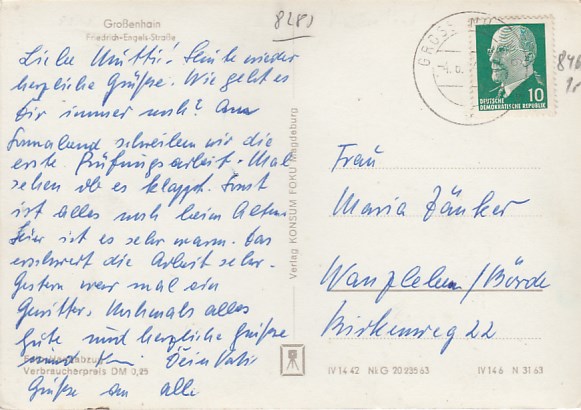 Großenhain
Friedrich-Engels-Straße
8280
Liebe Mutti! Heute wieder
herzliche Grüße. Wie geht es
Dir immer noch? Am
Sonnabend schreiben wir die
erste Prüfungsarbeit. Mal
sehen ob es klappt. Sonst
ist alles noch beim Alten.
Hier ist es sehr warm. Das
erschwert die Arbeit sehr.
Gestern war mal ein
Gewitter. Nochmals alles
Gute und herzliche Grüße
und Dein
Grüße an alle
Verbraucherpreis DM 0,25
Verlag KONSUM FOKO Magdeburg
GROSS
10
DEUTSCHE
DEMOKRATISCHE REPUBLIK
846
Frau
Maria Zänker
Wanzleben/Börde
Birkenweg 22
IV 14 42 NkG 209 95 63 IV 14 6 N 31 63